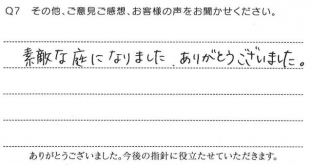 Q7 その他、ご意見ご感想、お客様の声をお聞かせください。
素敵な庭になりました。ありがとうございました。
ありがとうございました。今後の指針に役立たせていただきます。